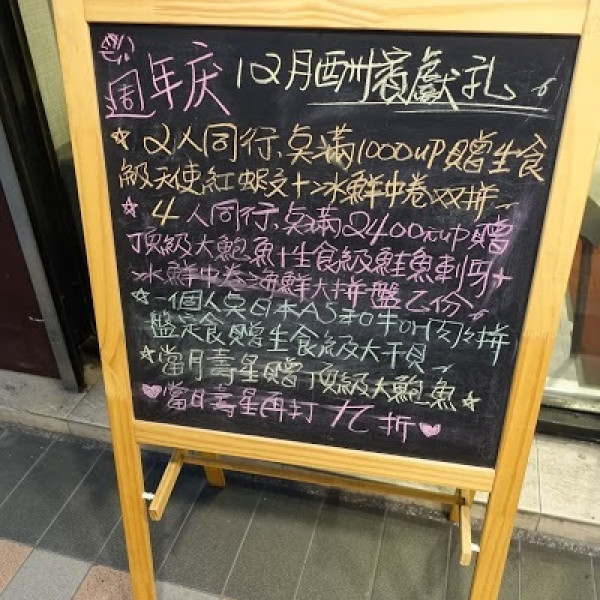 週年庆 12月酬賓獻礼
☆2人同行,桌滿1000up贈生食
級天使紅蝦+冰鮮中卷双拼~
☆4人同行,桌滿2400元up贈
頂級大鮑魚+生食級鮭魚刺身+
冰鮮中卷=海鮮大拼盤乙份~
☆一個人點日本A5和牛or肉々拼
盤定食贈生食級大干貝~
☆當月壽星贈頂級大鮑魚☆
♥當日壽星再打九折♥